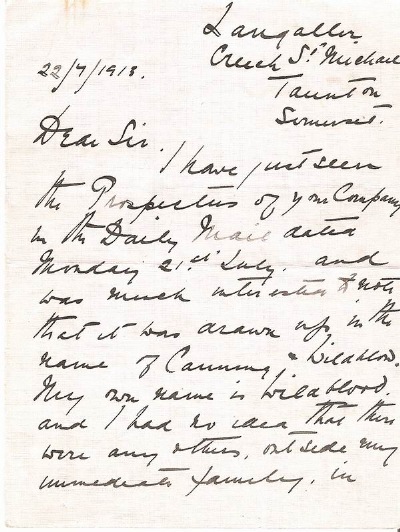 Langaller
Creech St Michael
Taunton
Somerset.
22/7/1913.
Dear Sir.
I have just seen
the Prospectus of your Company
in the Daily Mail dated
Monday 21st July. and
was much interested to note
that it was drawn up in the
name of Canning & Wildblood.
My own name is Wildblood.
and I had no idea that there
were any others, outside my
immediate family, in